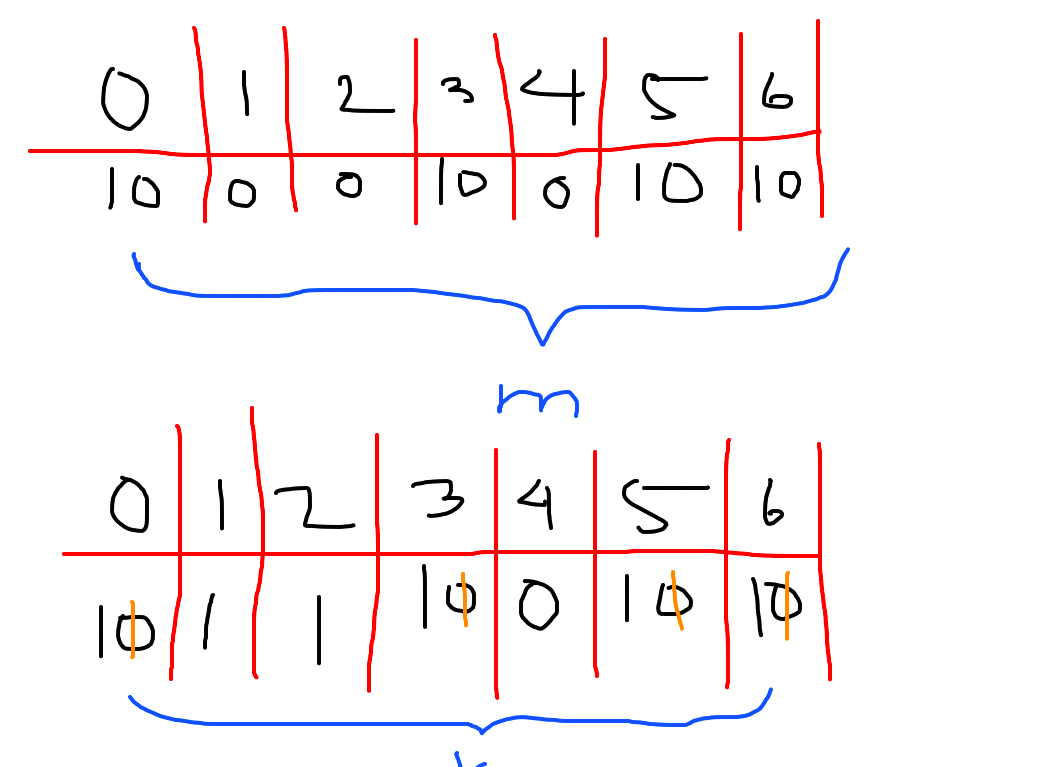 0 1 2 3 4 5 6
10 0 0 10 0 10 10
m
0 1 2 3 4 5 6
10 1 1 10 0 10 10